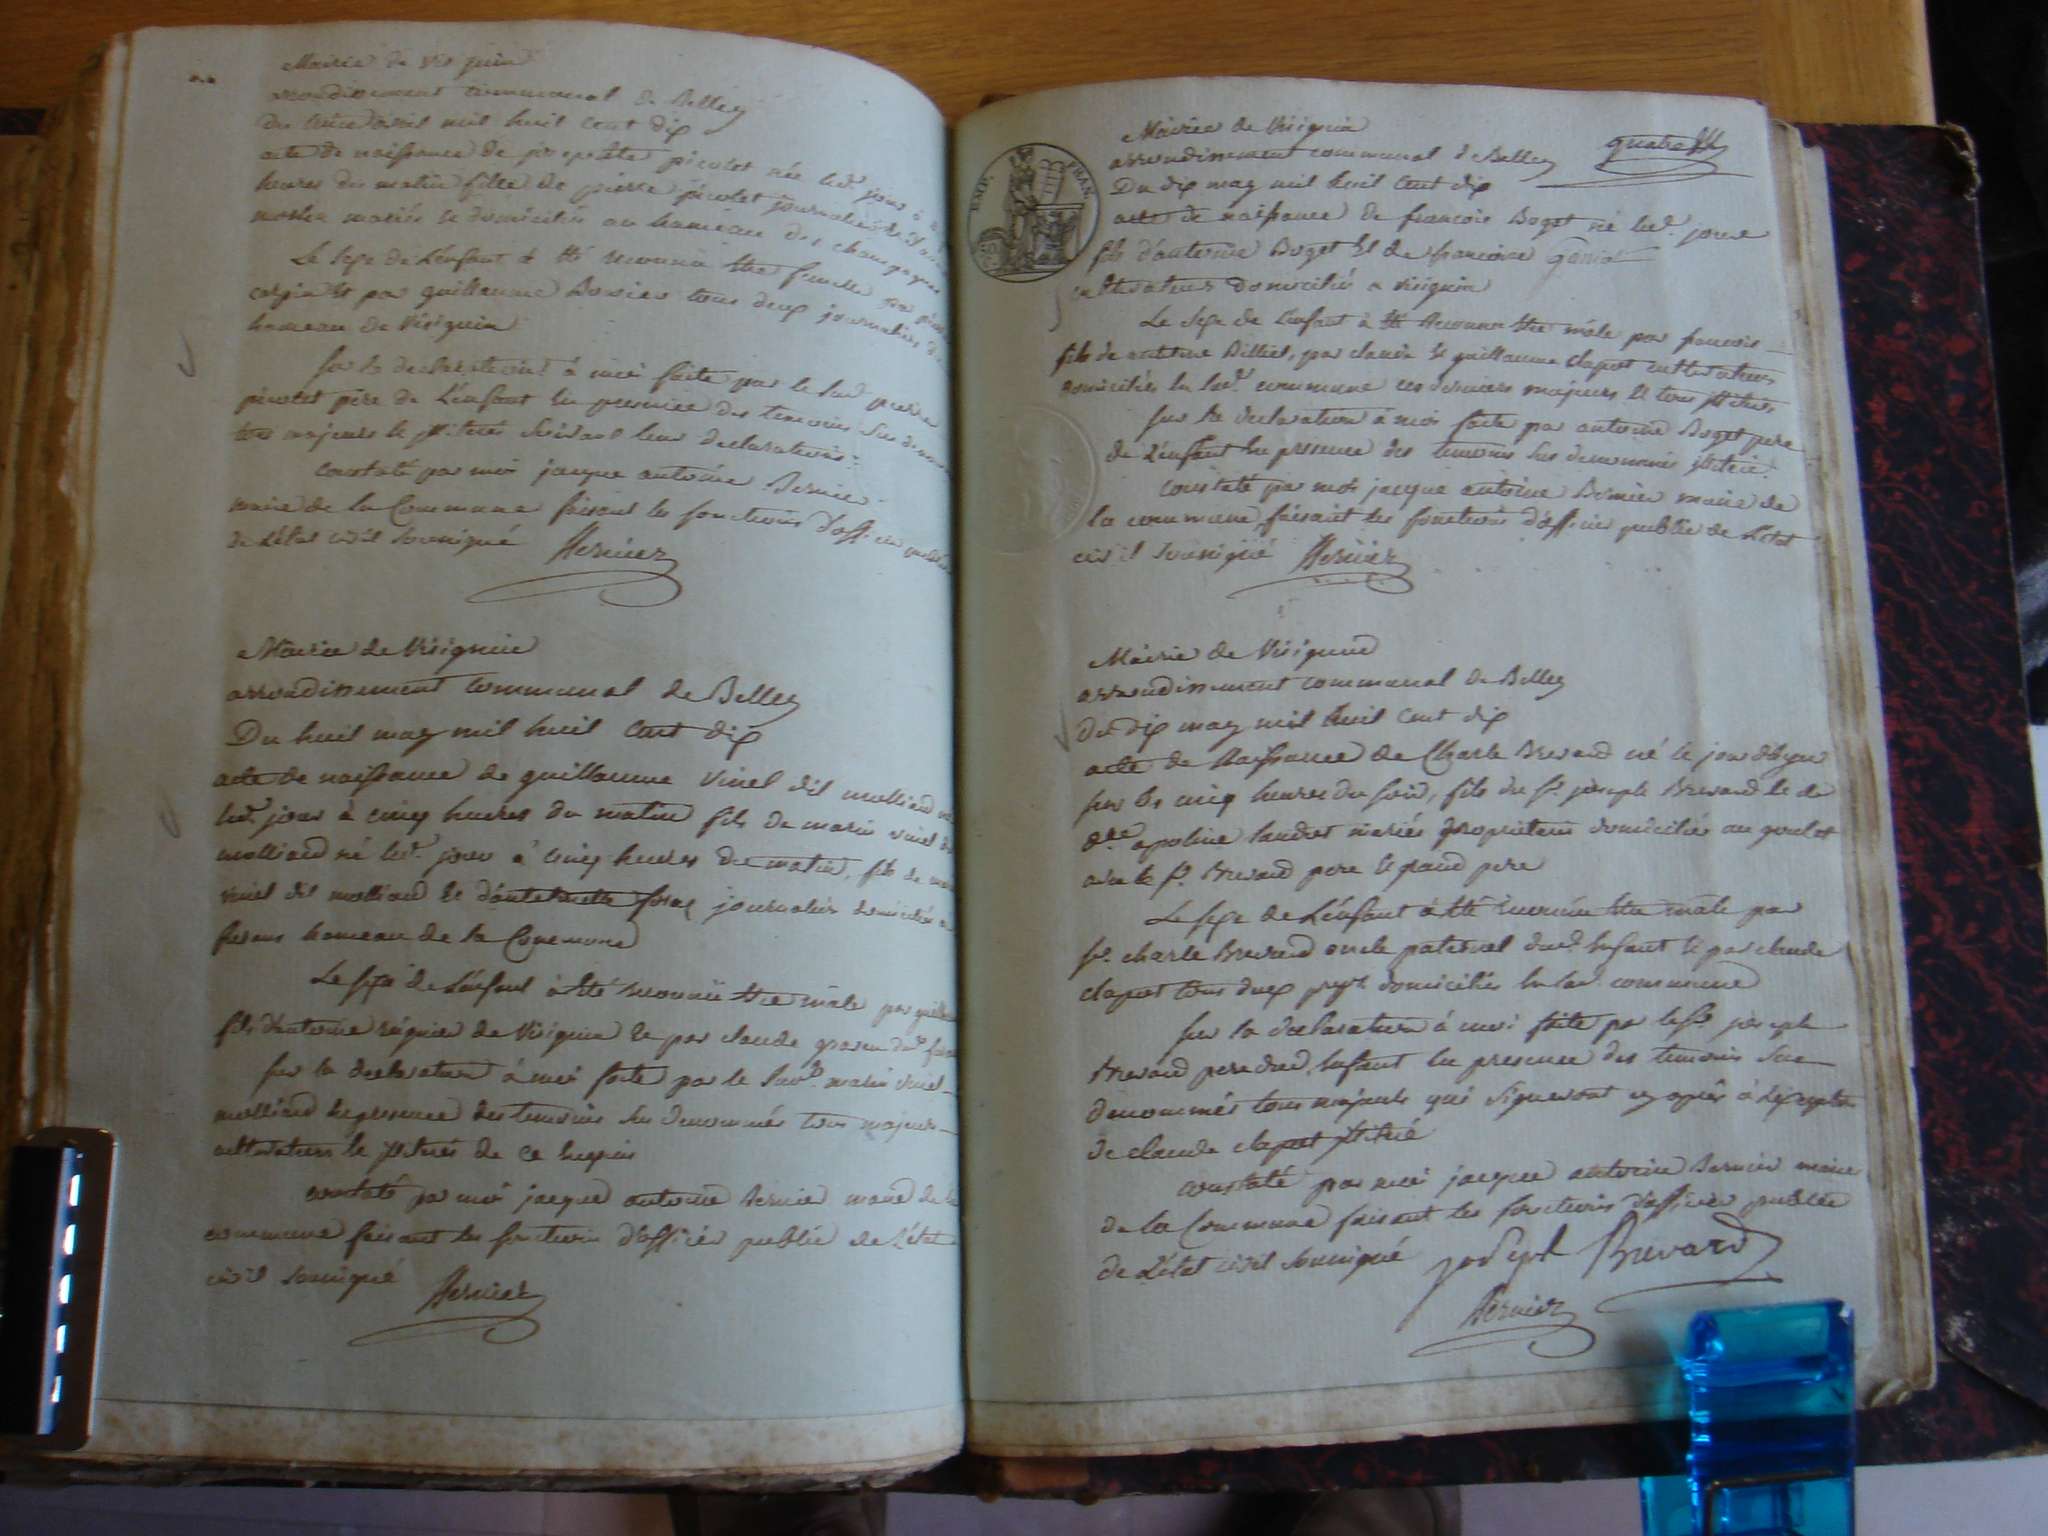 Mairie de Virignin
arrondissement communal de Belley
Du avril mil huit cent dix
acte de naissance de josephte picolet née led. jour à
heures du matin fille de pierre picolet journalier et
mariés et domiciliés au hameau des champagnes
Le sexe de L'enfant à été reconnu être femelle par
et par guillaume tous deux journaliers
hameau de Virignin
sur la declaration à moi faite par le sud. pierre
picolet père de L'enfant en presence des temoins sus denommés
tous majeurs et illiterés suivant leur declaration
constaté par moi jacque antoine Bernier
maire de la Commune faisant les fonctions d'officier public
de L'état civil soussigné Bernier
Mairie de Virignin
arrondissement communal de Belley
Du huit may mil huit cent dix
acte de naissance de guillaume vinel dit molliand né
led. jour à cinq heures du matin fils de marin vinel dit
molliand né led. jour à cinq heures du matin, fils de marin
vinel dit molliand et d'antoinette journalier domiciliés a
hameau de la Commune
Le sexe de L'enfant à été reconnu être mâle par guillaume
fils d'antoine de Virignin et par claude
sur la declaration à moi faite par le sud. marin vinel
molliand en presence des temoins sus denommés tous majeurs
cultivateurs et illiterés de ce requis
constaté par moi jacque antoine Bernier maire de la
commune faisant les fonctions d'officier public de L'état
civil soussigné Bernier
EMP. FRAN.
Mairie de Virignin
arrondissement communal de Belley
Du dix may mil huit cent dix
acte de naissance de francois Boget né led. jour
fils d'antoine Boget et de francoise
cultivateurs domiciliés a Virignin
Le sexe de L'enfant à été Reconnu être mâle par francois
fils de antoine Billiet, par claude et guillaume clapet cultivateurs
domiciliés en lad. commune ces derniers majeurs et tous illiterés
sur la declaration à moi faite par antoine Boget pere
de L'enfant en presence des temoins sus denommés illiterés
constaté par moi jacque antoine Bernier maire de
la commune faisant les fonctions d'officier public de L'état
civil soussigné Bernier
Mairie de Virignin
arrondissement communal de Belley
du dix may mil huit cent dix
acte de Naissance de Charle Brevard né le jour d'hyer
sur les cinq heures du soir, fils du sr. joseph Brevard et de
apoline mariés proprietaires domiciliés au goulet
avec le sr. Brevard pere et grand pere
Le sexe de L'enfant à été reconnu être mâle par
sr. charle Brevard oncle paternel dud. enfant et par claude
clapet tous deux domiciliés en lad. commune
sur la declaration à moi faite par le sr. joseph
Brevard pere dud. enfant en presence des temoins sus
denommés tous majeurs qui signeront cy après à L'exception
de claude clapet illiteré
constaté par moi jacque antoine Bernier maire
de la Commune faisant les fonctions d'officier public
de L'état civil soussigné joseph Brevard
Bernier